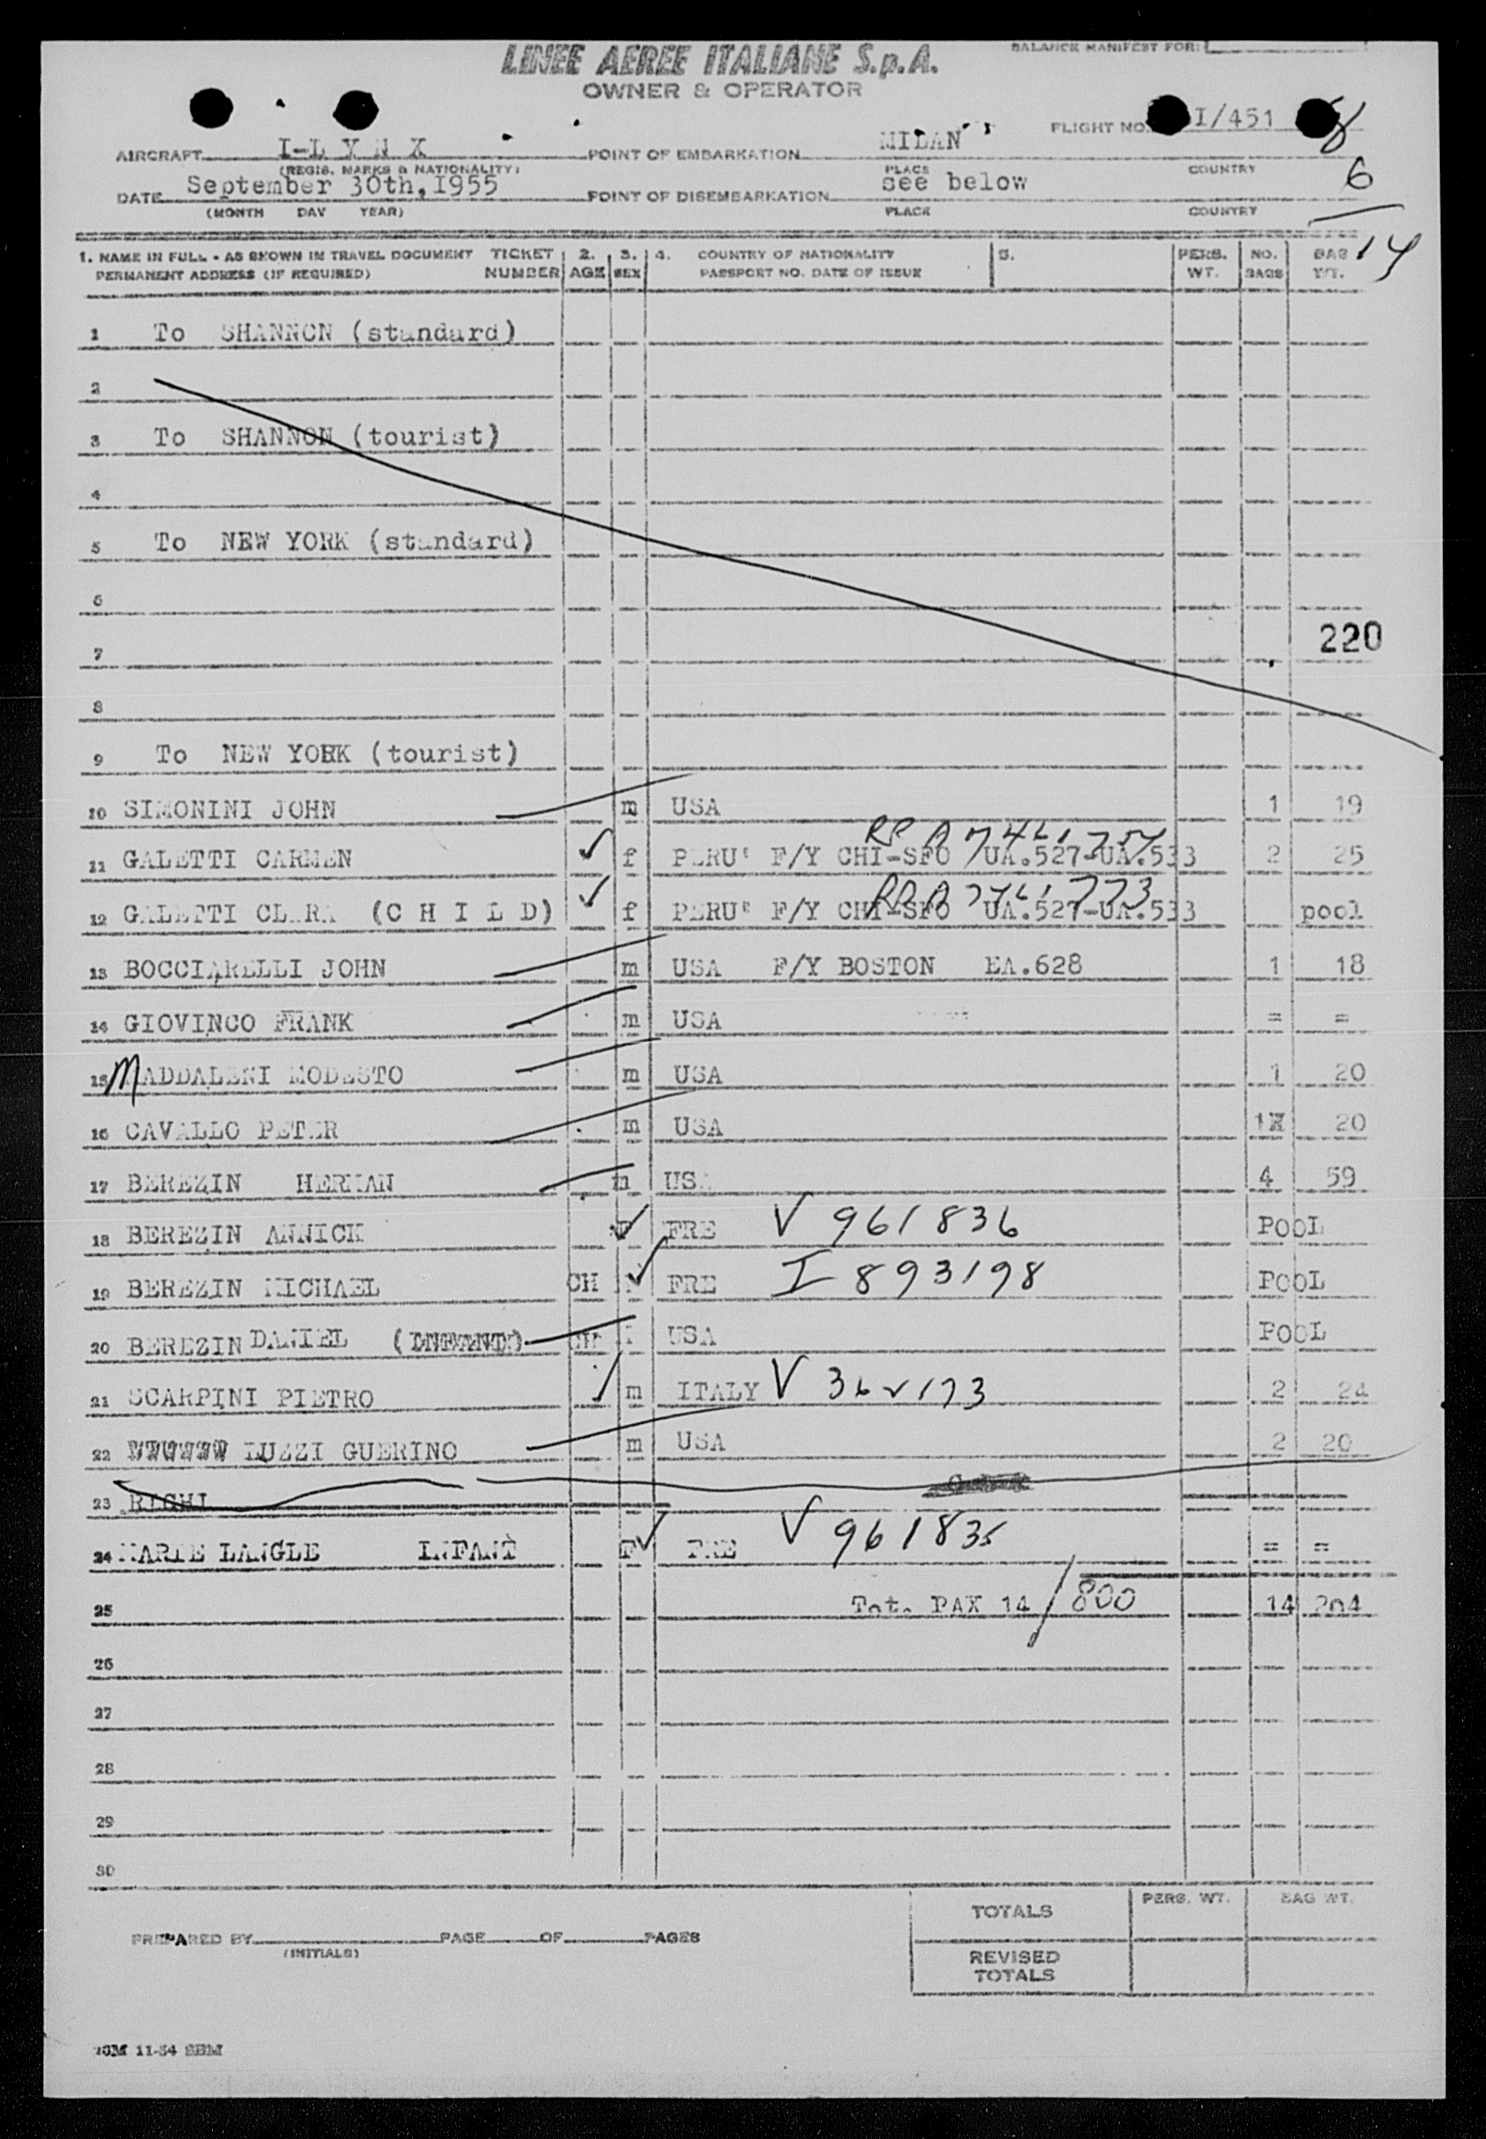 BALANCE MANIFEST FOR:
LINEE AEREE ITALIANE S.p.A.
OWNER & OPERATOR
AIRCRAFT I-L Y N X POINT OF EMBARKATION MILAN FLIGHT NO. I/451 8
(REGIS. MARKS & NATIONALITY) PLACE COUNTRY
DATE September 30th,1955 POINT OF DISEMBARKATION see below 6
(MONTH DAY YEAR) PLACE COUNTRY
14
1. NAME IN FULL - AS SHOWN IN TRAVEL DOCUMENT TICKET 2. 3. 4. COUNTRY OF NATIONALITY 5. PERS. NO. BAG
PERMANENT ADDRESS (IF REQUIRED) NUMBER AGE SEX PASSPORT NO. DATE OF ISSUE WT. BAGS WT.
1 To SHANNON (standard)
2
3 To SHANNON (tourist)
4
5 To NEW YORK (standard)
6
220
7
8
9 To NEW YORK (tourist)
10 SIMONINI JOHN m USA 1 19
11 GALETTI CARMEN f PERU' F/Y CHI-SFO UA.527-UA.533 2 25
12 GALETTI CLARA (C H I L D) f PERU' F/Y CHI-SFO UA.527-UA.533 pool
13 BOCCIARELLI JOHN m USA F/Y BOSTON EA.628 1 18
14 GIOVINCO FRANK m USA = =
15 MADDALENI MODESTO m USA 1 20
16 CAVALLO PETER m USA 1 20
17 BEREZIN HERMAN m USA 4 59
18 BEREZIN ANNICK F FRE V 961836 POOL
19 BEREZIN MICHAEL CH FRE I 893198 POOL
20 BEREZIN DANIEL (INFANT) CH USA POOL
21 SCARPINI PIETRO m ITALY V 362173 2 24
22 LUZZI GUERINO m USA 2 20
23 RIGHI
24 MARIE LANGLE INFANT F FRE V 961835 = =
25 Tot. PAX 14 / 800 14 204
26
27
28
29
30
TOTALS PERS. WT. BAG WT.
PREPARED BY PAGE OF PAGES
(INITIALS)
REVISED
TOTALS
11-54 SBM